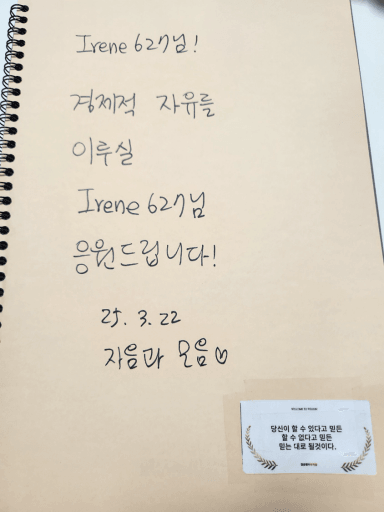 Irene627님!
경제적 자유를
이루실
Irene627님
응원드립니다!
25. 3. 22
자음과 모음♡
당신이 할 수 있다고 믿든
할 수 없다고 믿든
믿는 대로 될것이다.